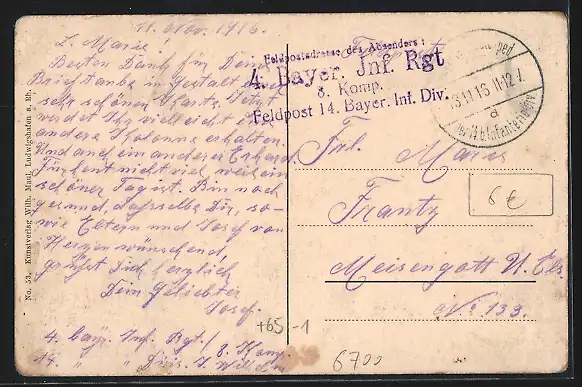 11. Nov. 1916.
L. Marie!
Besten Dank für Deine
Brieftaube in Gestalt einer
sehr schönen Karte. Jetzt
werdet Ihr vielleicht eine
andere Kolonne erhalten.
Und auch ein anderer Erhard.
kein
schöner Tag ist. Bin noch
gesund, dasselbe Dir, so-
wie Eltern und Josef von
Herzen wünschend,
grüßt Dich herzlich
Dein Geliebter
Josef.
4. bayr. Inf. Rgt./ 8. Komp.
14. " " Divis.
Feldpostadresse des Absenders:
4. Bayer. Inf. Rgt
8. Komp.
Feldpost 14. Bayer. Inf. Div.
13.11.16. 11-12 V.
a
Frl. Marie
Frantz
Meisengott U. Els.
No 133.
6 €
+65 -1
6700
No. 53. Kunstverlag Wilh. Maul, Ludwigshafen a. Rh.